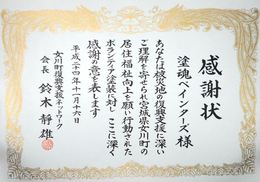 感謝状
塗魂ペインターズ 様
あなたは被災地の復興支援に深い
ご理解を寄せられ宮城県女川町の
居住福祉向上を願い行動された
ボランティア塗装に対しここに深く
感謝の意を表します
平成二十四年十一月十六日
女川町復興支援ネットワーク
会長 鈴木静雄